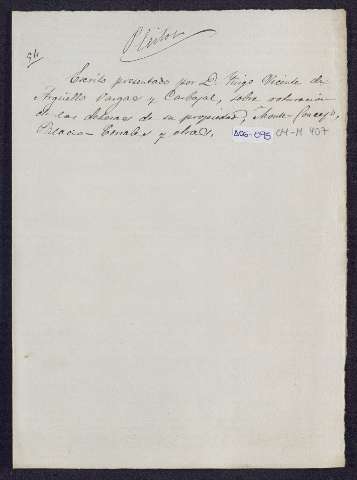 Pleitos
94
Escrito presentado por D. Iñigo Vicente de
Argüello Vargas y Carbajal, sobre
de las dehesas de su propiedad, Monte-Concejo,
Palacio- Corrales y otras.
DOC-095 04-M 407